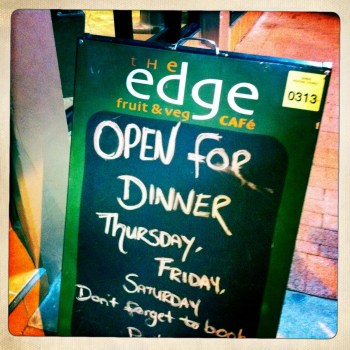 THE
edge
fruit & veg CAFé
0313
OPEN FOR
DINNER
THURSDAY,
FRIDAY,
SATURDAY
Don't forget to book